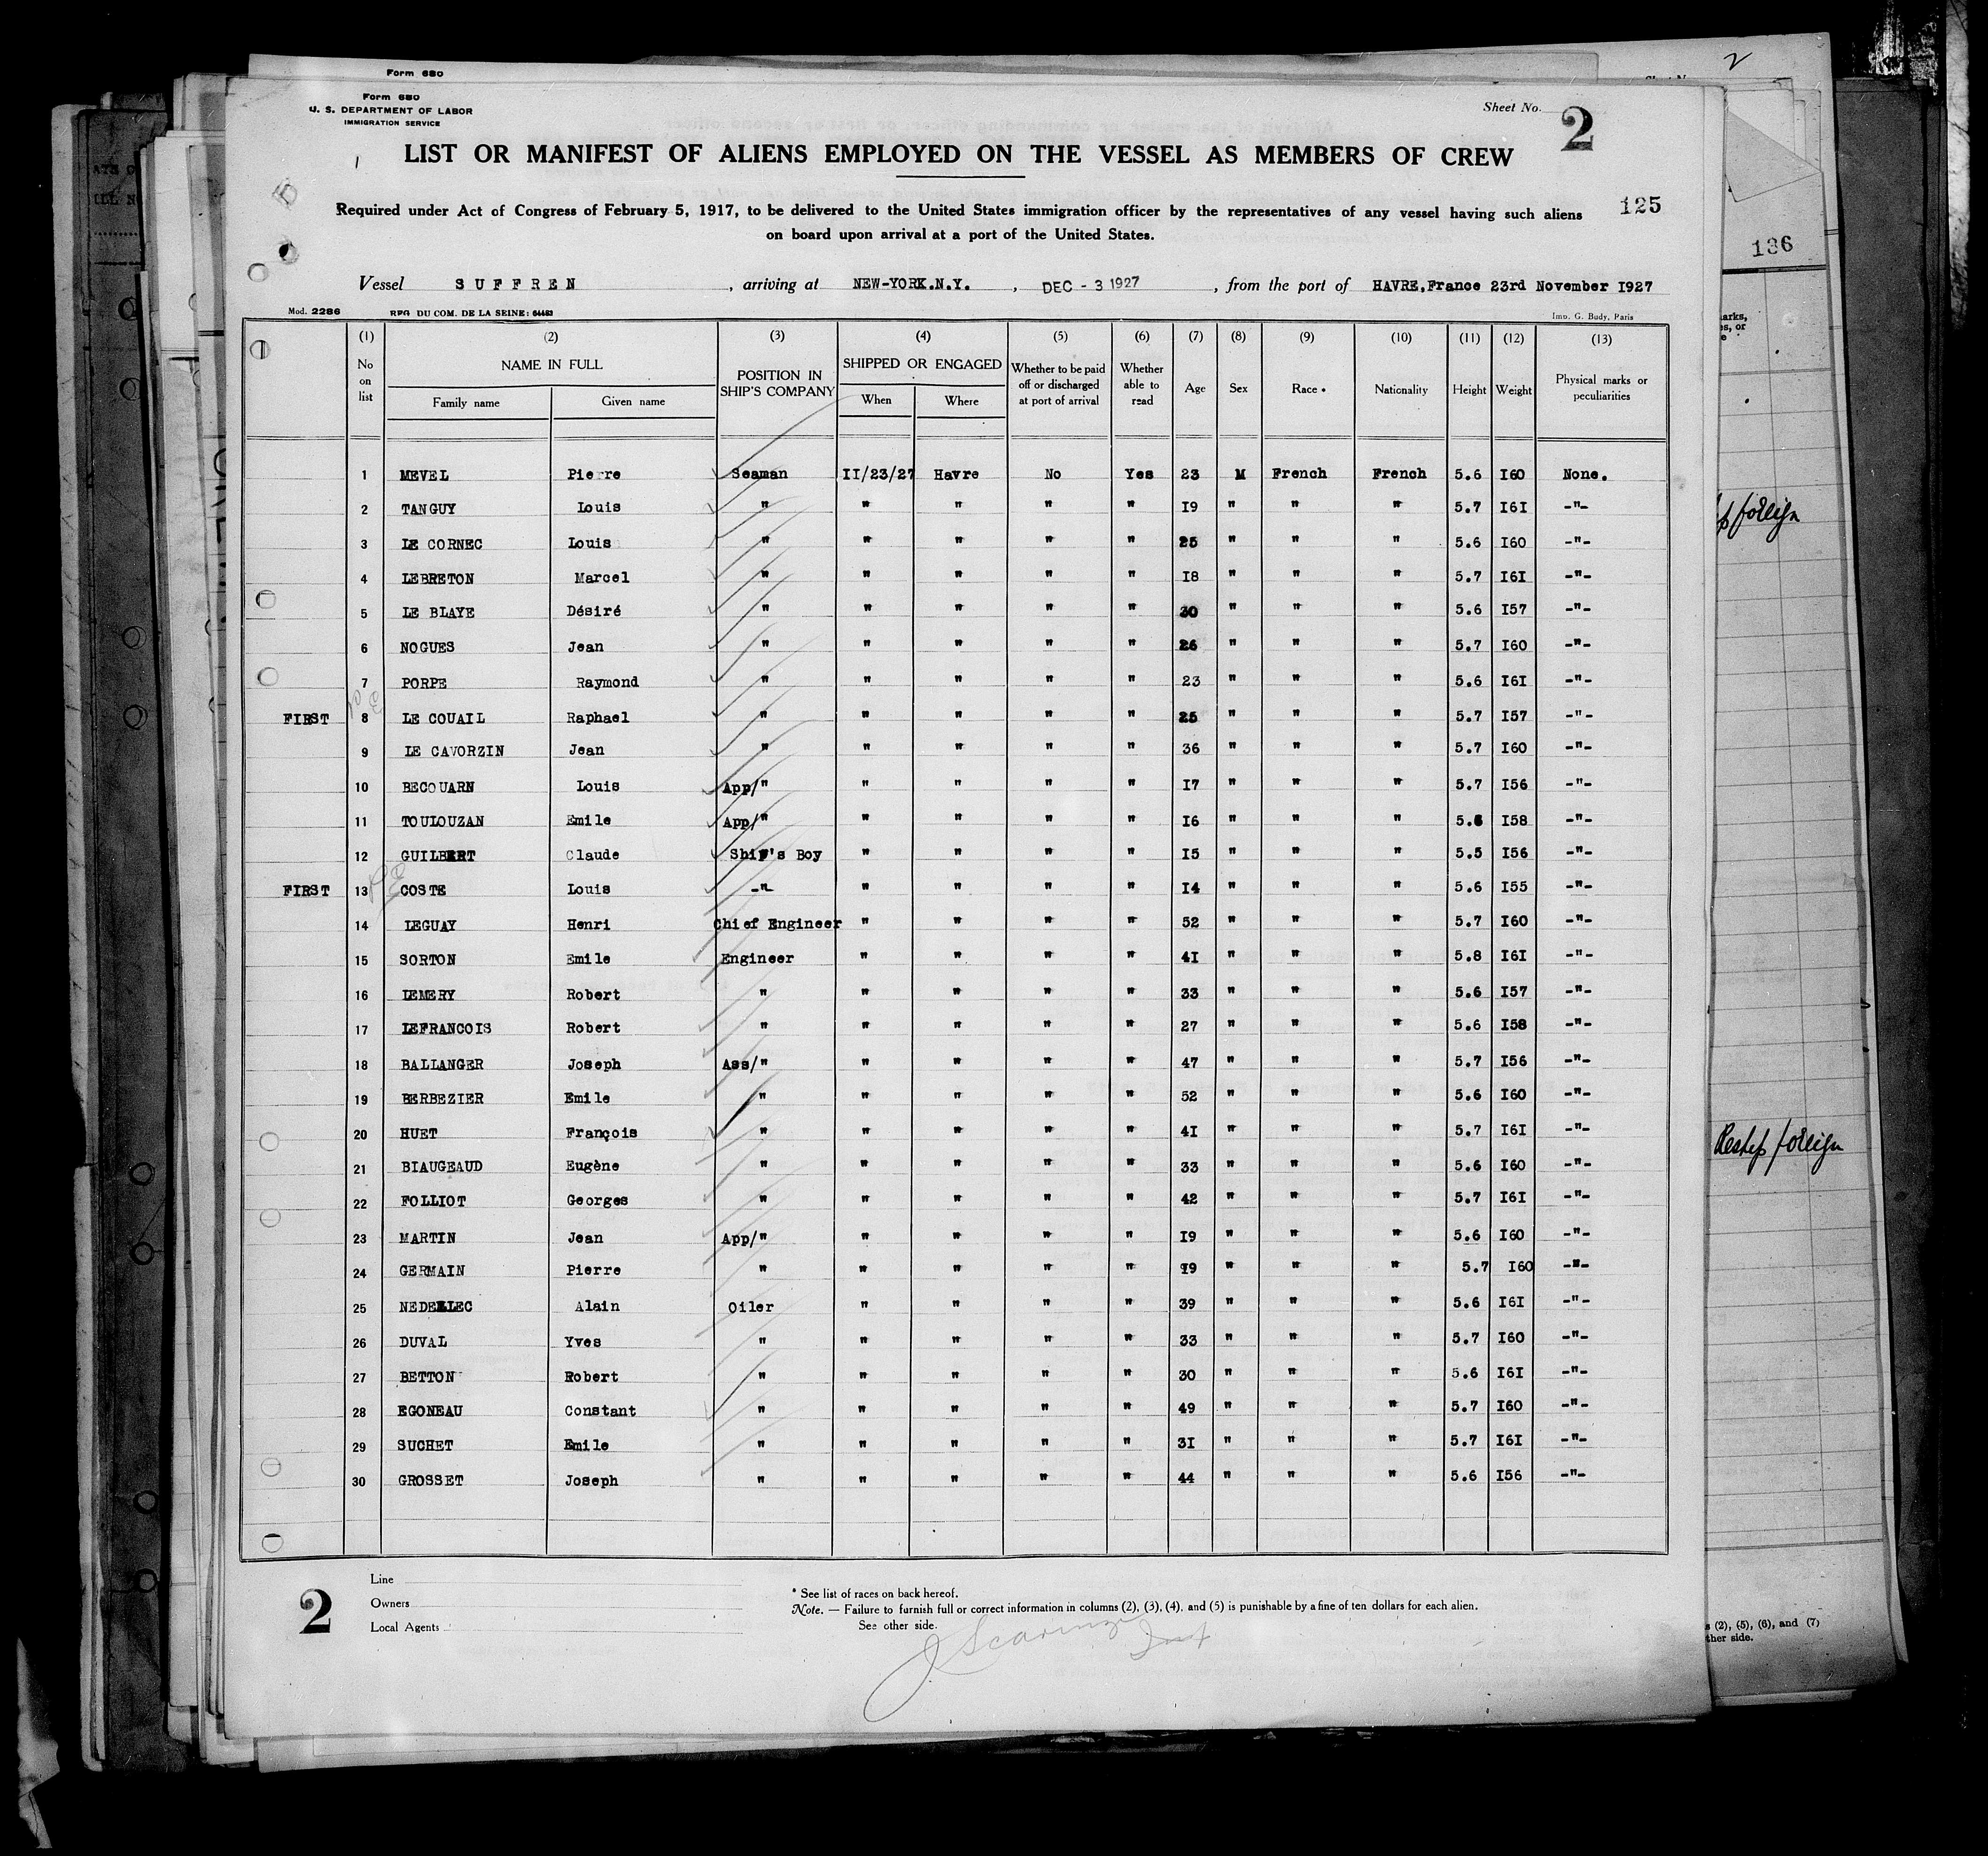 Form 680
Form 680
U. S. DEPARTMENT OF LABOR
IMMIGRATION SERVICE
Sheet No. 2
2
LIST OR MANIFEST OF ALIENS EMPLOYED ON THE VESSEL AS MEMBERS OF CREW
Required under Act of Congress of February 5, 1917, to be delivered to the United States immigration officer by the representatives of any vessel having such aliens
on board upon arrival at a port of the United States.
125
136
Vessel SUFFREN, arriving at NEW-YORK.N.Y., DEC - 3 1927, from the port of HAVRE,France 23rd November I927
Mod. 2286 RFG DU COM. DE LA SEINE: 64483 Imp. G. Budy, Paris
(1) (2) (3) (4) (5) (6) (7) (8) (9) (10) (11) (12) (13)
No on list NAME IN FULL Family name Given name POSITION IN SHIP'S COMPANY SHIPPED OR ENGAGED When Where Whether to be paid off or discharged at port of arrival Whether able to read Age Sex Race * Nationality Height Weight Physical marks or peculiarities
1 MEVEL Pierre Seaman II/23/27 Havre No Yes 23 M French French 5.6 I60 None.
2 TANGUY Louis " " " " " I9 " " " 5.7 I6I -"-
3 LE CORNEC Louis " " " " " 25 " " " 5.6 I60 -"-
4 LEBRETON Marcel " " " " " I8 " " " 5.7 I6I -"-
5 LE BLAYE Désiré " " " " " 30 " " " 5.6 I57 -"-
6 NOGUES Jean " " " " " 26 " " " 5.7 I60 -"-
7 PORPE Raymond " " " " " 23 " " " 5.6 I6I -"-
FIRST 8 LE COUAIL Raphael " " " " " 25 " " " 5.7 I57 -"-
9 LE CAVORZIN Jean " " " " " 36 " " " 5.7 I60 -"-
10 BECOUARN Louis App/" " " " " I7 " " " 5.7 I56 -"-
11 TOULOUZAN Emile App/" " " " " I6 " " " 5.6 I58 -"-
12 GUILBERT Claude Ship's Boy " " " " I5 " " " 5.5 I56 -"-
FIRST 13 COSTE Louis -"- " " " " I4 " " " 5.6 I55 -"-
14 LEGUAY Henri Chief Engineer " " " " 52 " " " 5.7 I60 -"-
15 SORTON Emile Engineer " " " " 4I " " " 5.8 I6I -"-
16 LEMERY Robert " " " " " 33 " " " 5.6 I57 -"-
17 LEFRANCOIS Robert " " " " " 27 " " " 5.6 I58 -"-
18 BALLANGER Joseph Ass/" " " " " 47 " " " 5.7 I56 -"-
19 BERBEZIER Emile " " " " " 52 " " " 5.6 I60 -"-
20 HUET François " " " " " 4I " " " 5.7 I6I -"-
21 BIAUGEAUD Eugène " " " " " 33 " " " 5.6 I60 -"-
22 FOLLIOT Georges " " " " " 42 " " " 5.7 I6I -"-
23 MARTIN Jean App/" " " " " I9 " " " 5.6 I60 -"-
24 GERMAIN Pierre " " " " " I9 " " " 5.7 I60 -"-
25 NEDELLEC Alain Oiler " " " " 39 " " " 5.6 I6I -"-
26 DUVAL Yves " " " " " 33 " " " 5.7 I60 -"-
27 BETTON Robert " " " " " 30 " " " 5.6 I6I -"-
28 EGONEAU Constant " " " " " 49 " " " 5.7 I60 -"-
29 SUCHET Emile " " " " " 3I " " " 5.7 I6I -"-
30 GROSSET Joseph " " " " " 44 " " " 5.6 I56 -"-
foreign
Reship foreign
2
Line
Owners
Local Agents
* See list of races on back hereof.
Note. — Failure to furnish full or correct information in columns (2), (3), (4), and (5) is punishable by a fine of ten dollars for each alien.
See other side.
(2), (5), (6), and (7)
ther side.